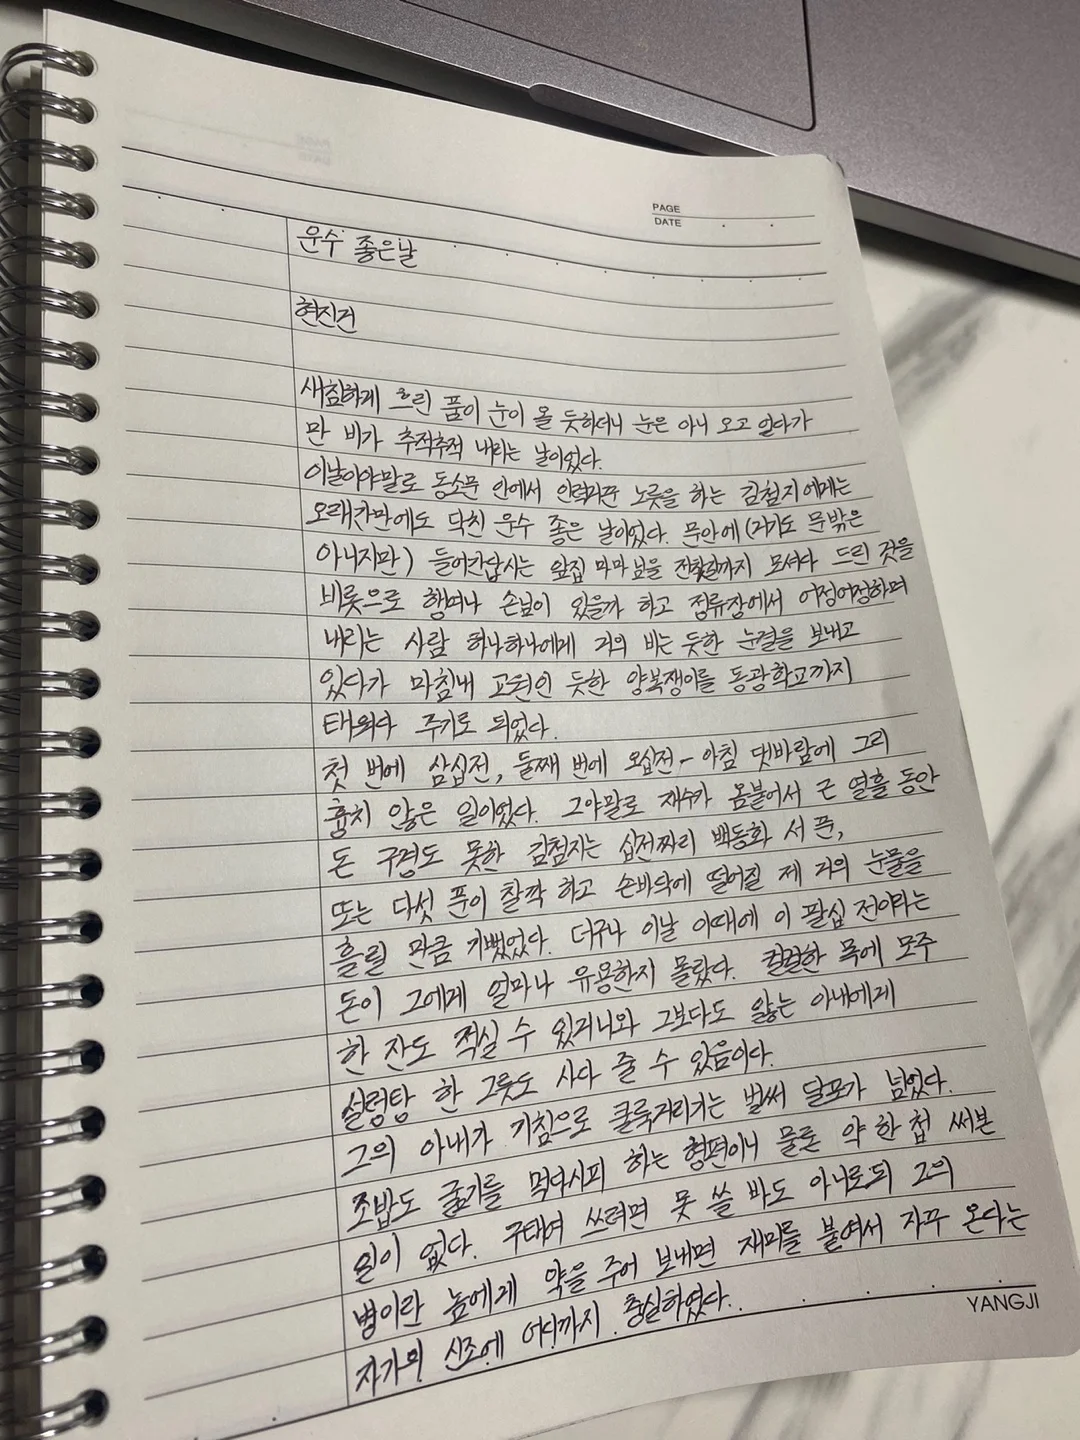 PAGE
DATE
운수 좋은날
현진건
새침하게 흐린 품이 눈이 올 듯하더니 눈은 아니 오고 얼다가
만 비가 추적추적 내리는 날이었다.
이날이야말로 동소문 안에서 인력거꾼 노릇을 하는 김첨지에게는
오래간만에도 닥친 운수 좋은 날이었다. 문안에(거기도 문밖은
아니지만) 들어간답시는 앞집 마마님을 전찻길까지 모셔다 드린 것을
비롯으로 행여나 손님이 있을까 하고 정류장에서 어정어정하며
내리는 사람 하나하나에게 거의 비는 듯한 눈결을 보내고
있다가 마침내 교원인 듯한 양복쟁이를 동광학교까지
태워다 주기로 되었다.
첫 번에 삼십전, 둘째 번에 오십전 - 아침 댓바람에 그리
흉치 않은 일이었다. 그야말로 재수가 옴붙어서 근 열흘 동안
돈 구경도 못한 김첨지는 십전짜리 백동화 서 푼,
또는 다섯 푼이 찰깍 하고 손바닥에 떨어질 제 거의 눈물을
흘릴 만큼 기뻤었다. 더구나 이날 이때에 이 팔십 전이라는
돈이 그에게 얼마나 유용한지 몰랐다. 컬컬한 목에 모주
한 잔도 적실 수 있거니와 그보다도 앓는 아내에게
설렁탕 한 그릇도 사다 줄 수 있음이다.
그의 아내가 기침으로 쿨룩거리기는 벌써 달포가 넘었다.
조밥도 굶기를 먹다시피 하는 형편이니 물론 약 한 첩 써본
일이 없다. 구태여 쓰려면 못 쓸 바도 아니로되 그의
병이란 놈에게 약을 주어 보내면 재미를 붙여서 자꾸 온다는
자기의 신조에 어디까지 충실하였다.
YANGJI